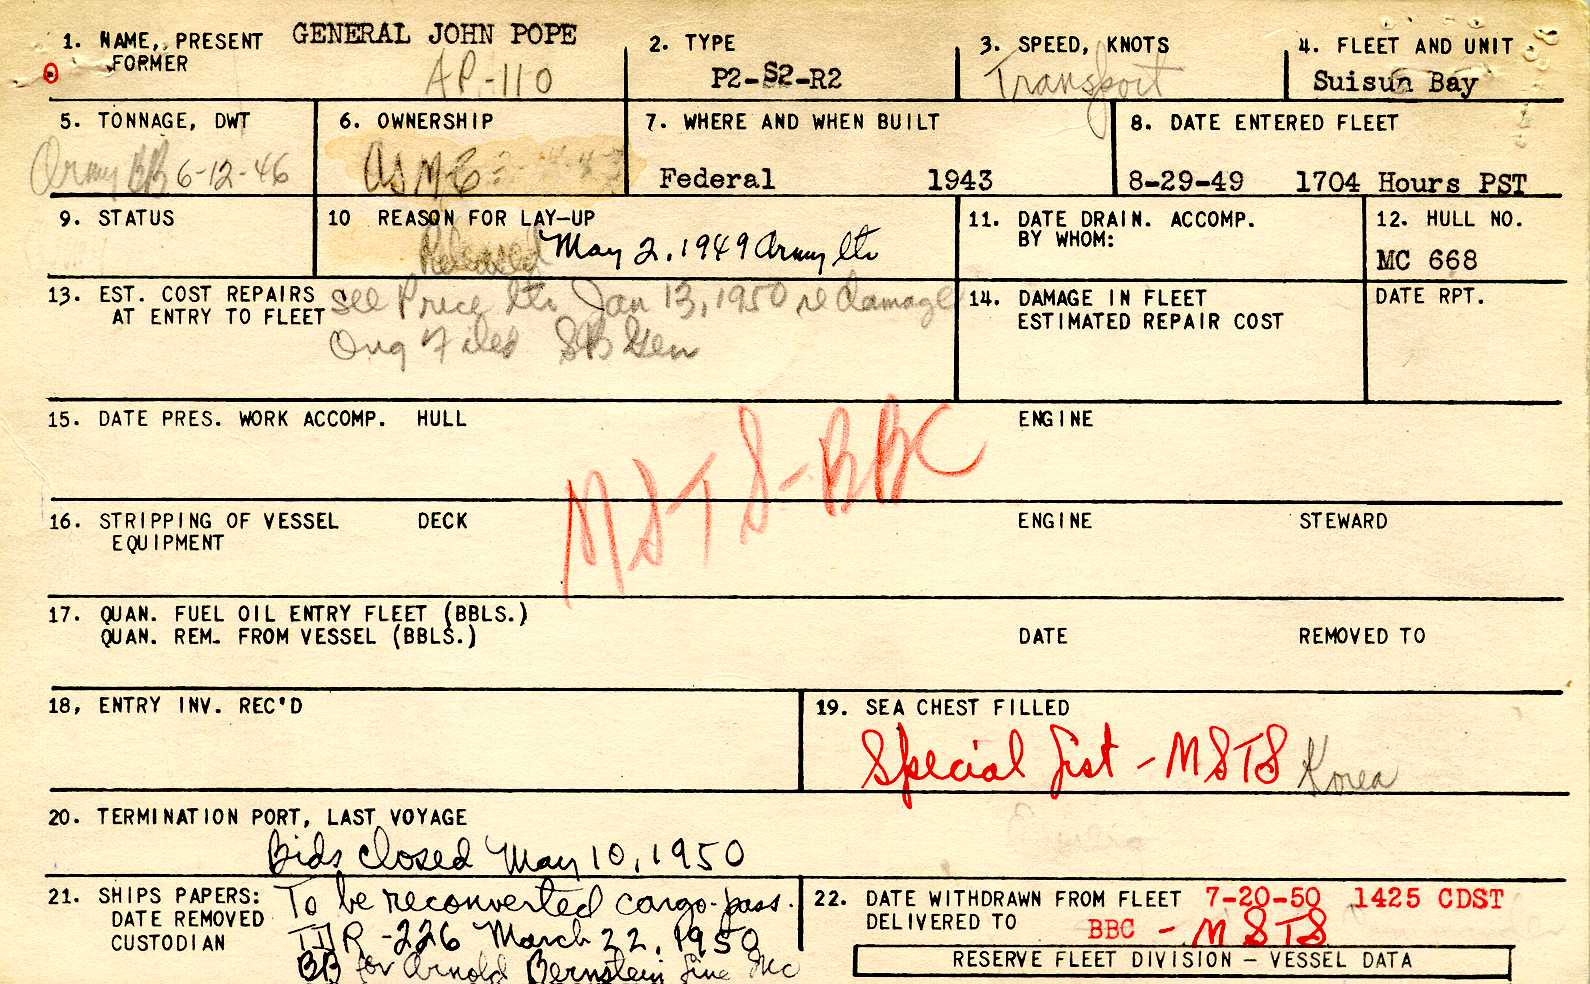 1. NAME, PRESENT GENERAL JOHN POPE
FORMER AP-110
2. TYPE
P2-S2-R2
3. SPEED, KNOTS
Transport
4. FLEET AND UNIT
Suisun Bay
5. TONNAGE, DWT
Army BB 6-12-46
6. OWNERSHIP
7. WHERE AND WHEN BUILT
Federal 1943
8. DATE ENTERED FLEET
8-29-49 1704 Hours PST
9. STATUS
10 REASON FOR LAY-UP
Released May 2, 1949 Army ltr
11. DATE DRAIN. ACCOMP.
BY WHOM:
12. HULL NO.
MC 668
13. EST. COST REPAIRS
AT ENTRY TO FLEET
See Price ltr Jan 13, 1950 re damage
Orig Files SB Gen
14. DAMAGE IN FLEET
ESTIMATED REPAIR COST
DATE RPT.
15. DATE PRES. WORK ACCOMP. HULL ENGINE
MSTS-BBC
16. STRIPPING OF VESSEL DECK ENGINE STEWARD
EQUIPMENT
17. QUAN. FUEL OIL ENTRY FLEET (BBLS.)
QUAN. REM. FROM VESSEL (BBLS.) DATE REMOVED TO
18, ENTRY INV. REC'D
19. SEA CHEST FILLED
Special List - MSTS Korea
20. TERMINATION PORT, LAST VOYAGE
Bids closed May 10, 1950
21. SHIPS PAPERS:
DATE REMOVED
CUSTODIAN
To be reconverted cargo-pass.
TDR -226 March 22, 1950
BB for Arnold Bernstein Line Inc
22. DATE WITHDRAWN FROM FLEET 7-20-50 1425 CDST
DELIVERED TO BBC - MSTS
RESERVE FLEET DIVISION - VESSEL DATA